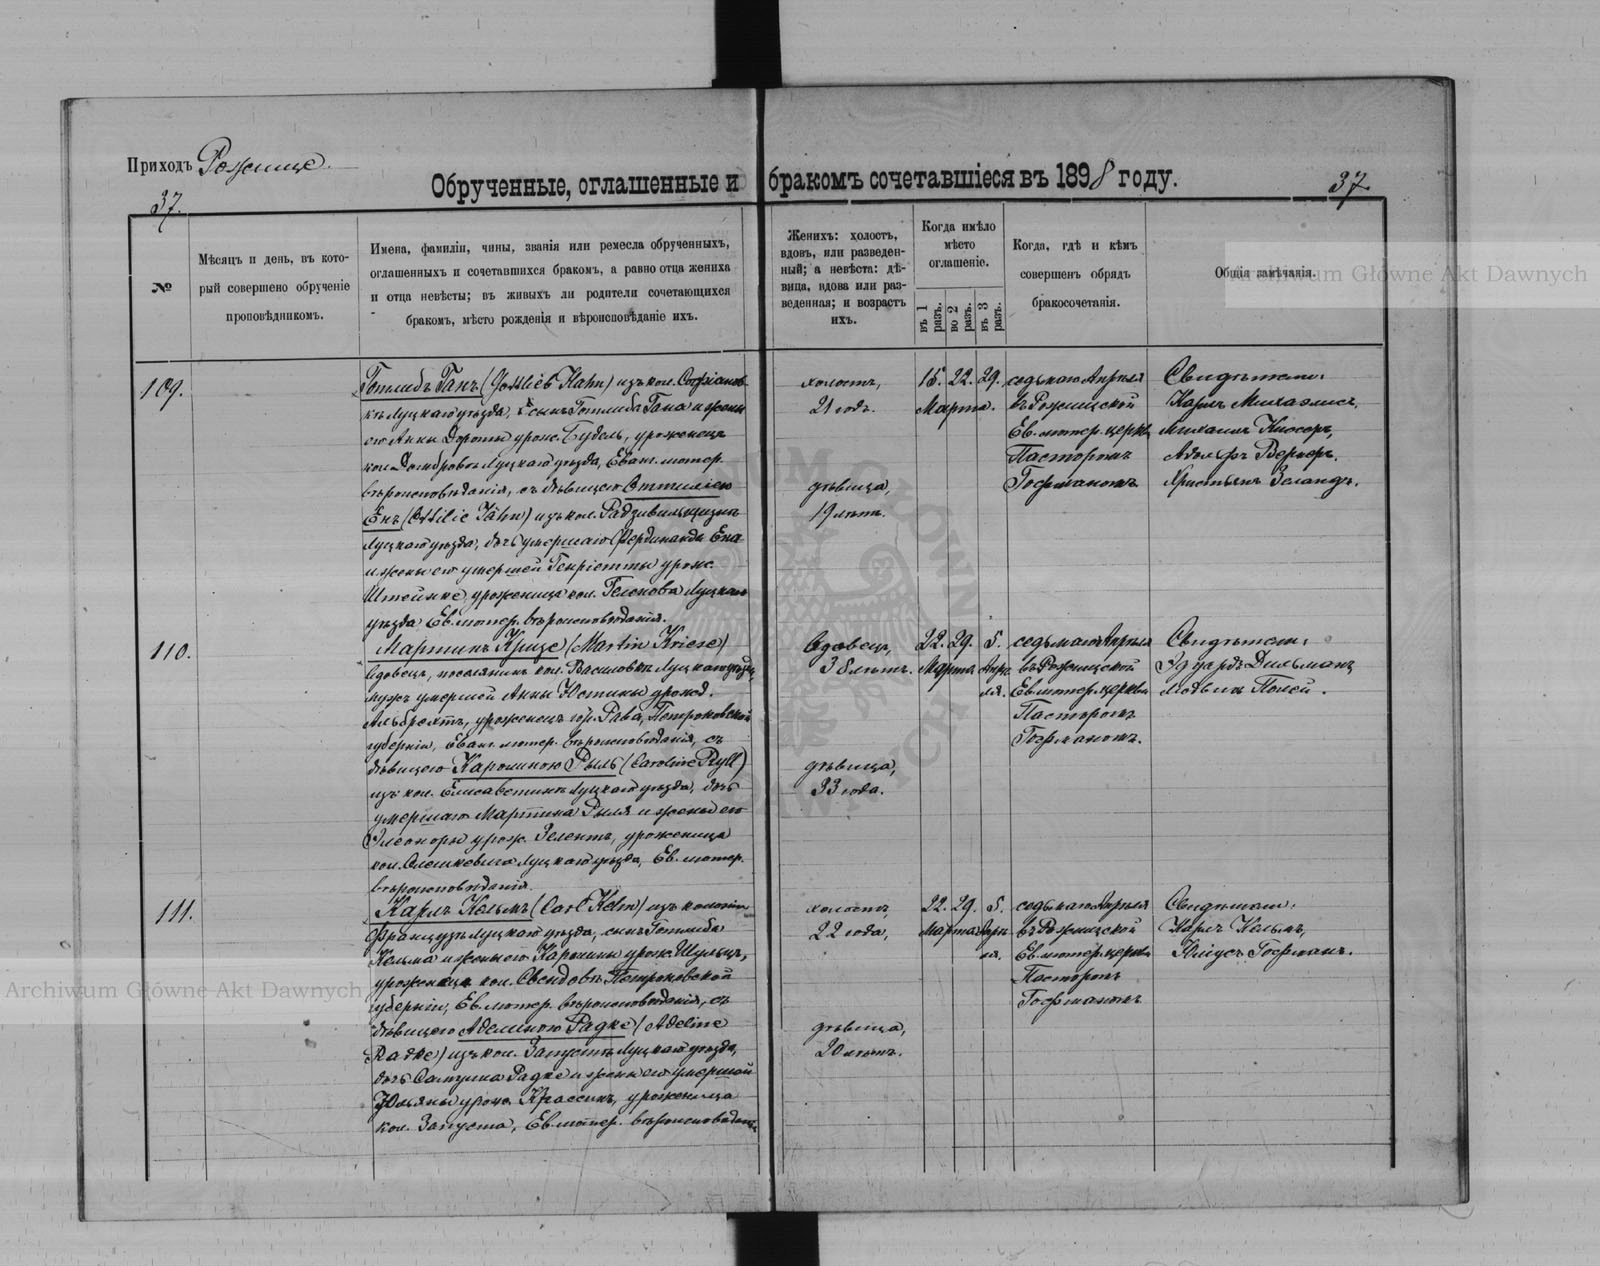 Приходъ Рожище.
37.
Обрученные, оглашенные и бракомъ сочетавшіеся въ 1898 году.
37.
№
Мѣсяцъ и день, въ кото-
рый совершено обрученіе
проповѣдникомъ.
Имена, фамиліи, чины, званія или ремесла обрученныхъ,
оглашенныхъ и сочетавшихся бракомъ, а равно отца жениха
и отца невѣсты; въ живыхъ ли родители сочетающихся
бракомъ, мѣсто рожденія и вѣроисповѣданіе ихъ.
Женихъ: холостъ,
вдовъ, или разведен-
ный; а невѣста: дѣ-
вица, вдова или раз-
веденная; и возрастъ
ихъ.
Когда имѣло
мѣсто
оглашеніе.
въ 1 разъ.
во 2 разъ.
въ 3 разъ.
Когда, гдѣ и кѣмъ
совершенъ обрядъ
бракосочетанія.
Общія замѣчанія.
109.
Готлибъ Ганъ (Gottlieb Hahn) изъ кол. Софіевк
къ Луцкаго уѣзда, сынъ Готлиба Гана и жены
его Анны Дороты урож. Будель, уроженецъ
кол. Домбровы Луцкаго уѣзда, Еванг. лютер.
вѣроисповѣданія, съ дѣвицею Оттиліею
Енъ (Ottilie Jähn) изъ кол. Радзивильщизна
Луцкаго уѣзда, дочь умершаго Фердинанда Ена
и жены его умершей Генріетты урож.
Штейнке, уроженица кол. Геленова Луцкаго
уѣзда Ев. лютер. вѣроисповѣданія.
холостъ,
21 годъ.
дѣвица,
19 лѣтъ.
15. 22. 29.
Марта.
седьмаго Апрѣля
въ Рожищской
Ев. лютер. церкви
Пасторомъ
Гофманомъ
Свидѣтели:
Карлъ Михаэлисъ,
Михаилъ Киосоръ,
Адольфъ Вернеръ.
Христьянъ Зеландъ.
110.
Мартинъ Кризе (Martin Kriese)
вдовецъ, поселянинъ кол. Василовкѣ Луцкаго уѣзда,
мужъ умершей Анны Юстины урожд.
Альбрехтъ, уроженецъ гор. Рава, Петроковской
губерніи, Еванг. лютер. вѣроисповѣданія, съ
дѣвицею Каролиною Рыль (Caroline Ryll)
изъ кол. Елисаветинъ Луцкаго уѣзда, дочь
умершаго Мартина Рыля и жены его
Элеоноры урож. Зелентъ, уроженица
кол. Олешкевича Луцкаго уѣзда, Ев. лютер.
вѣроисповѣданія.
Вдовецъ,
38 лѣтъ.
дѣвица,
33 года.
22. 29. 5.
Марта Апрѣ
ля.
седьмаго Апрѣля
въ Рожищской
Ев. лютер. церкви
Пасторомъ
Гофманомъ.
Свидѣтели:
Эдуардъ Дильманъ
Людвигъ Полей.
111.
Карлъ Кельмъ (Carl Kelm) изъ колоніи
Французъ Луцкаго уѣзда, сынъ Готлиба
Кельма и жены его Каролины урож. Шульцъ,
уроженецъ кол. Свендовъ Петроковской
губерніи, Ев. лютер. вѣроисповѣданія, съ
дѣвицею Аделиною Радке (Adeline
Radke) изъ кол. Запустъ Луцкаго уѣзда,
дочь Самуила Радке и жены его умершей
Юльяны урож. Крассинъ, уроженица
кол. Запуста, Ев. лютер. вѣроисповѣданія.
холостъ,
22 года,
дѣвица,
20 лѣтъ.
22. 29. 5.
Марта Апрѣ
ля.
седьмаго Апрѣля
въ Рожищской
Ев. лютер. церкви
Пасторомъ
Гофманомъ
Свидѣтели:
Карлъ Кельмъ,
Юліусъ Гофманъ.
Archiwum Główne Akt Dawnych
Archiwum Główne Akt Dawnych